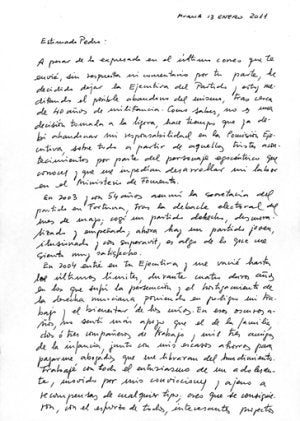 MURCIA 13 ENERO 2011
Estimado Pedro:
A pesar de lo expresado en el último correo que te
envié, sin respuesta ni comentario por tu parte, he
decidido dejar la Ejecutiva del Partido, estoy me-
ditando el posible abandono del mismo, tras cerca
de 40 años de militancia. Como sabes, no es una
decisión tomada a la ligera, hace tiempo que ya de-
bí abandonar mi responsabilidad en la Comisión Eje-
cutiva, sobre todo a partir de aquellos tristes acon-
tecimientos por parte del personaje egocéntrico que
conoces y que me impedían desarrollar mi labor
en el Ministerio de Fomento.
En 2003 y con 54 años asumí la secretaría del
partido en Fortuna, tras la debacle electoral del
mes de mayo, cogí un partido deshecho, desmora-
lizado y empeñado, ahora hay un partido joven,
ilusionado y con superavit, es algo de lo que me
siento muy satisfecho.
En 2004 entré en tu Ejecutiva y me vacié hasta
los últimos límites, durante cuatro duros años
en los que sufrí la persecución y el hostigamiento de
la derecha murciana poniendo en peligro mi tra-
bajo y el bienestar de los míos. En esos oscuros a-
ños, no sentí más apoyo que el de la familia,
dos o tres compañeros de trabajo y mis tres amigos
de la infancia, junto con mis escasos ahorros para
pagarme abogados que me libraran del hundimiento.
Trabajé con todo el entusiasmo de un adolescen-
te, movido por mis convicciones y ajeno a
recompensas de cualquier tipo, creo que se consiguie-
ron, con el esfuerzo de todos, interesantes proyectos